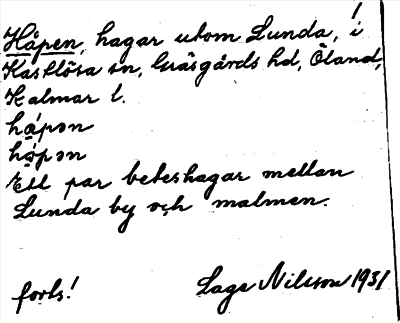 Håpen, hagar utom Lunda, i
Kastlösa sn, Gräsgårds hd, Öland,
Kalmar l.
hápən
hǫ́pən
Ett par beteshagar mellan
Lunda by och malmen.
forts! Lage Nilsson 1931